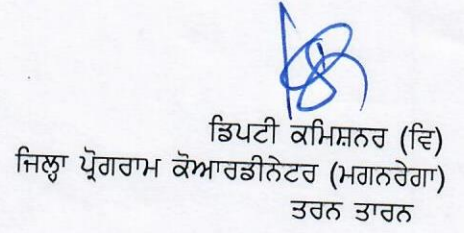 ਡਿਪਟੀ ਕਮਿਸ਼ਨਰ (ਵਿ)
ਜਿਲ੍ਹਾ ਪ੍ਰੋਗਰਾਮ ਕੋਆਰਡੀਨੇਟਰ (ਮਗਨਰੇਗਾ)
ਤਰਨ ਤਾਰਨ